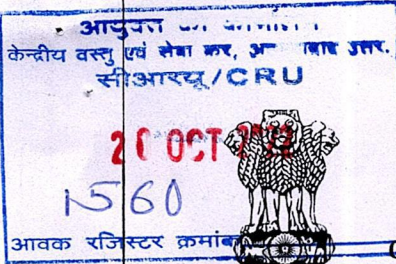 आयुक्त का कार्यालय
केन्द्रीय वस्तु एवं सेवा कर, उत्तर.
सीआरयू/CRU
OCT
1560
आवक रजिस्टर क्रमांक